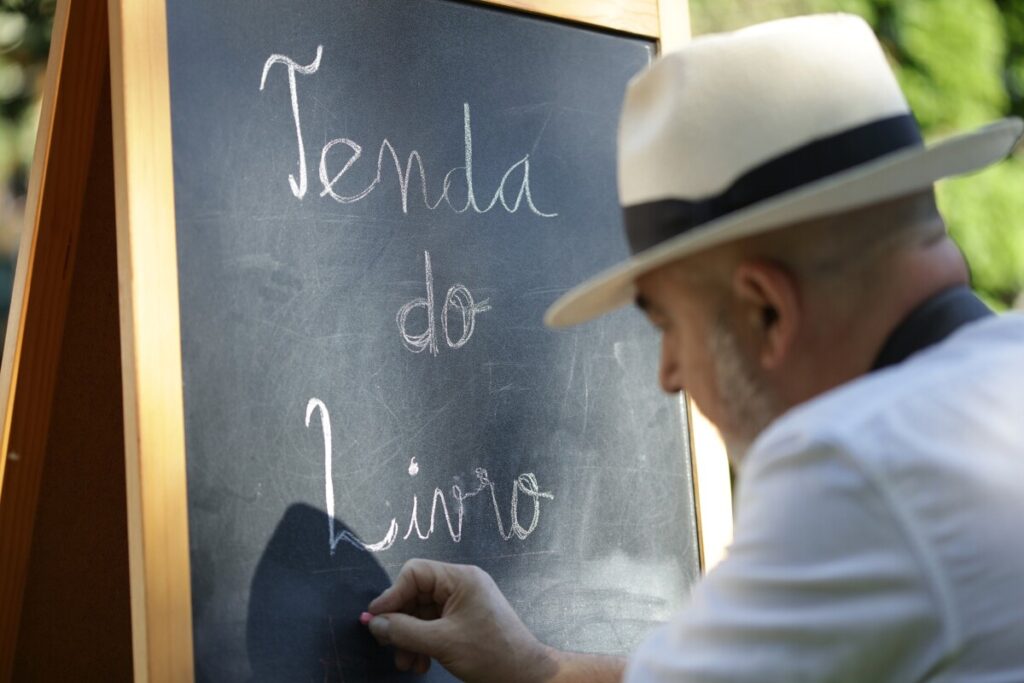 Tenda
do
Livro